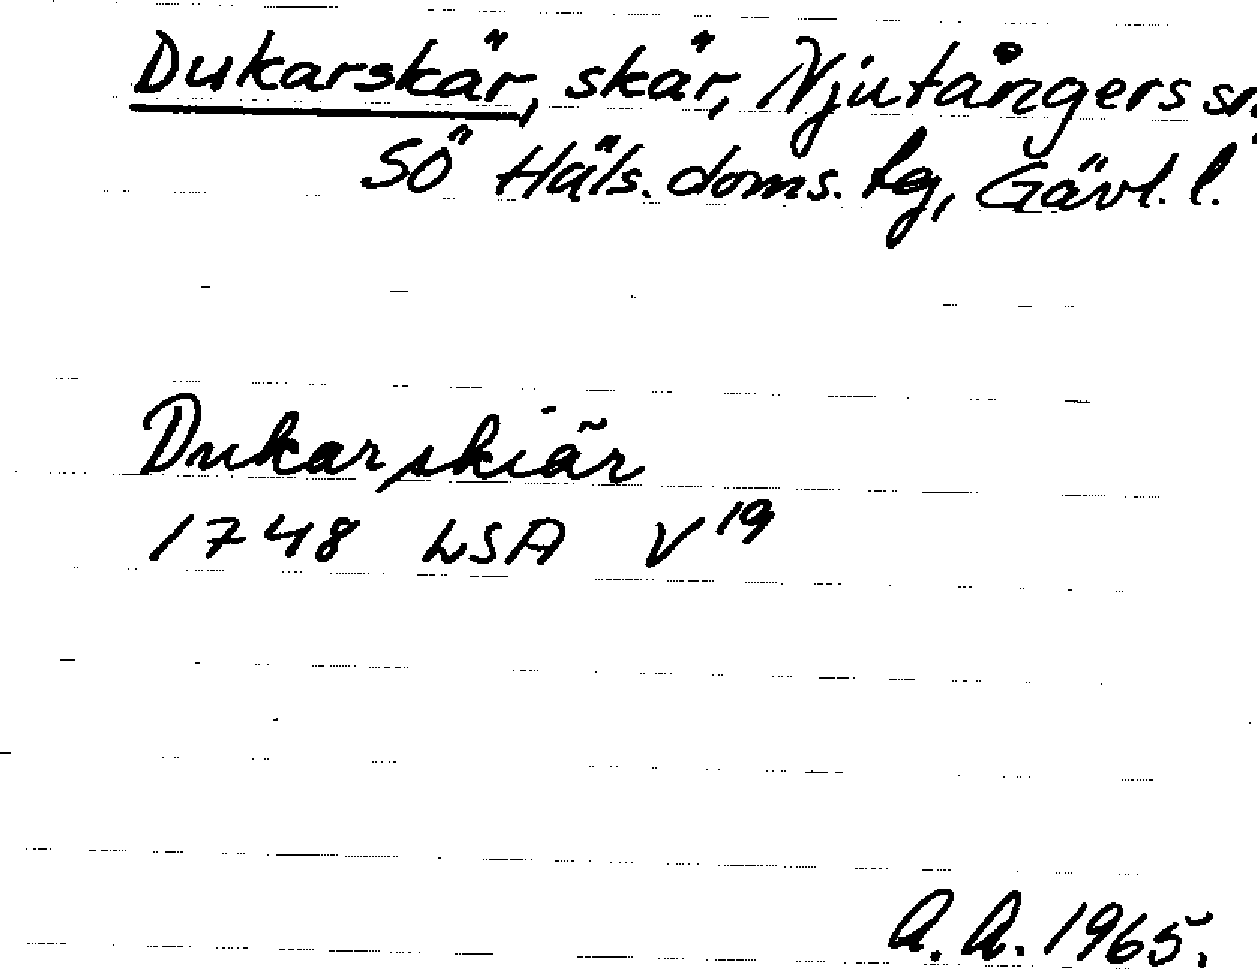 Dukarskär, skär, Njutångers sn.
SÖ Häls. doms. tg, Gävl. l.
Dukarskiär
1748 LSA V19
A. A. 1965.